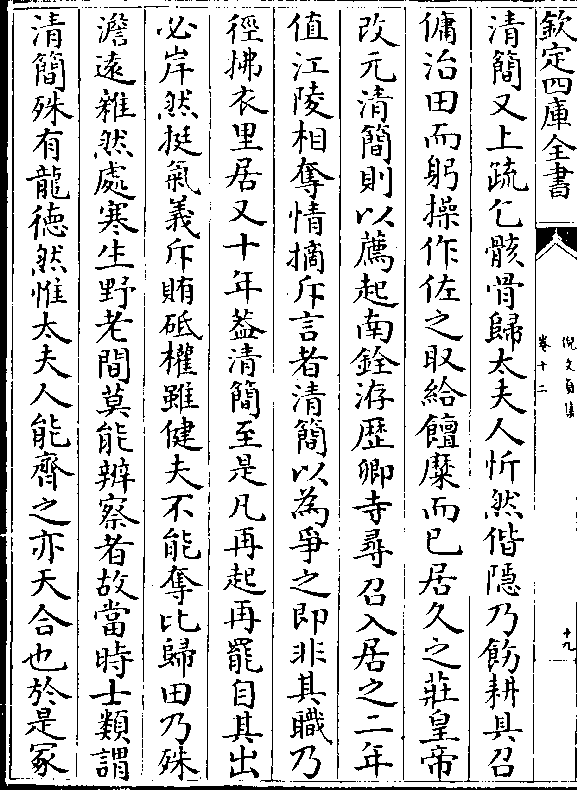 欽定四庫全書
倪文貞集
卷十二
十九
清簡又上疏乞骸骨歸太夫人忻然偕隐乃飭耕具召
傭治田而躬操作佐之取給饘糜而已居久之莊皇帝
改元清簡則以薦起南銓洊歴卿寺尋召入居之二年
值江陵相奪情摘斥言者清簡以為爭之即非其職乃
徑拂衣里居又十年葢清簡至是凡再起再罷自其出
必岸然挺氣義斥賄砥權雖健夫不能奪比歸田乃殊
澹逺雜然處寒生野老間莫能辨察者故當時士類謂
清簡殊有龍徳然惟太夫人能齊之亦天合也於是冢